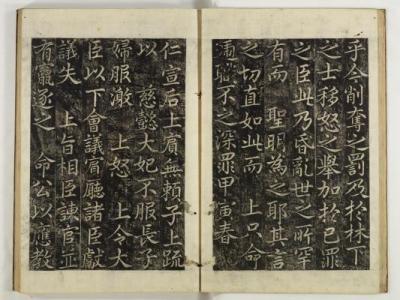 乎今削奪之罰乃於林下
之士移怒之擧加於已罪
之臣此乃昏亂世之所罕
有而 聖明爲之耶其言
之切直如此而 上只命
遞職不之深罪甲寅春
仁宣后上賓無賴子上疏
以 慈懿大妃不服長子
婦服激 上怒 上令大
臣以下會議賓廳諸臣獻
議失 上旨相臣諫官並
有竄逐之 命公以應敎